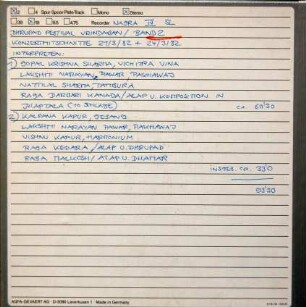 2 4 Spur-Spole/Track Mono Stereo
38 19 9,5 4,75 Recorder NAGRA IV SL
DHRUPAD FESTIVAL VRINDABAN / BAND 2
KONZERTMITSCHNITTE 27/3/82 + 24/3/82
INTERPRETEN:
1) GOPAL KRISHNA SHARMA, VICHITRA VINA
LAKSHMI NARAYAN PAWAR, PAKHAWAJ
NATTILAL SHARMA, TAMBURA
RAGA DARBARI KANADA / ALAP U. KOMPOSITION IN
JHAPTALA ca. 60'30
2) KALPANA KAPUR, GESANG
LAKSHMI NARAYAN PAWAR, PAKHAWAJ
VISHNU KAPUR, HARMONIUM
RAGA KEDARA / ALAP U. DHRUPAD
RAGA MALKOSH / ALAP U. DHAMAR
INSGES. ca.
93'30
AGFA-GEVAERT AG D-5090 Leverkusen 1 Made in Germany